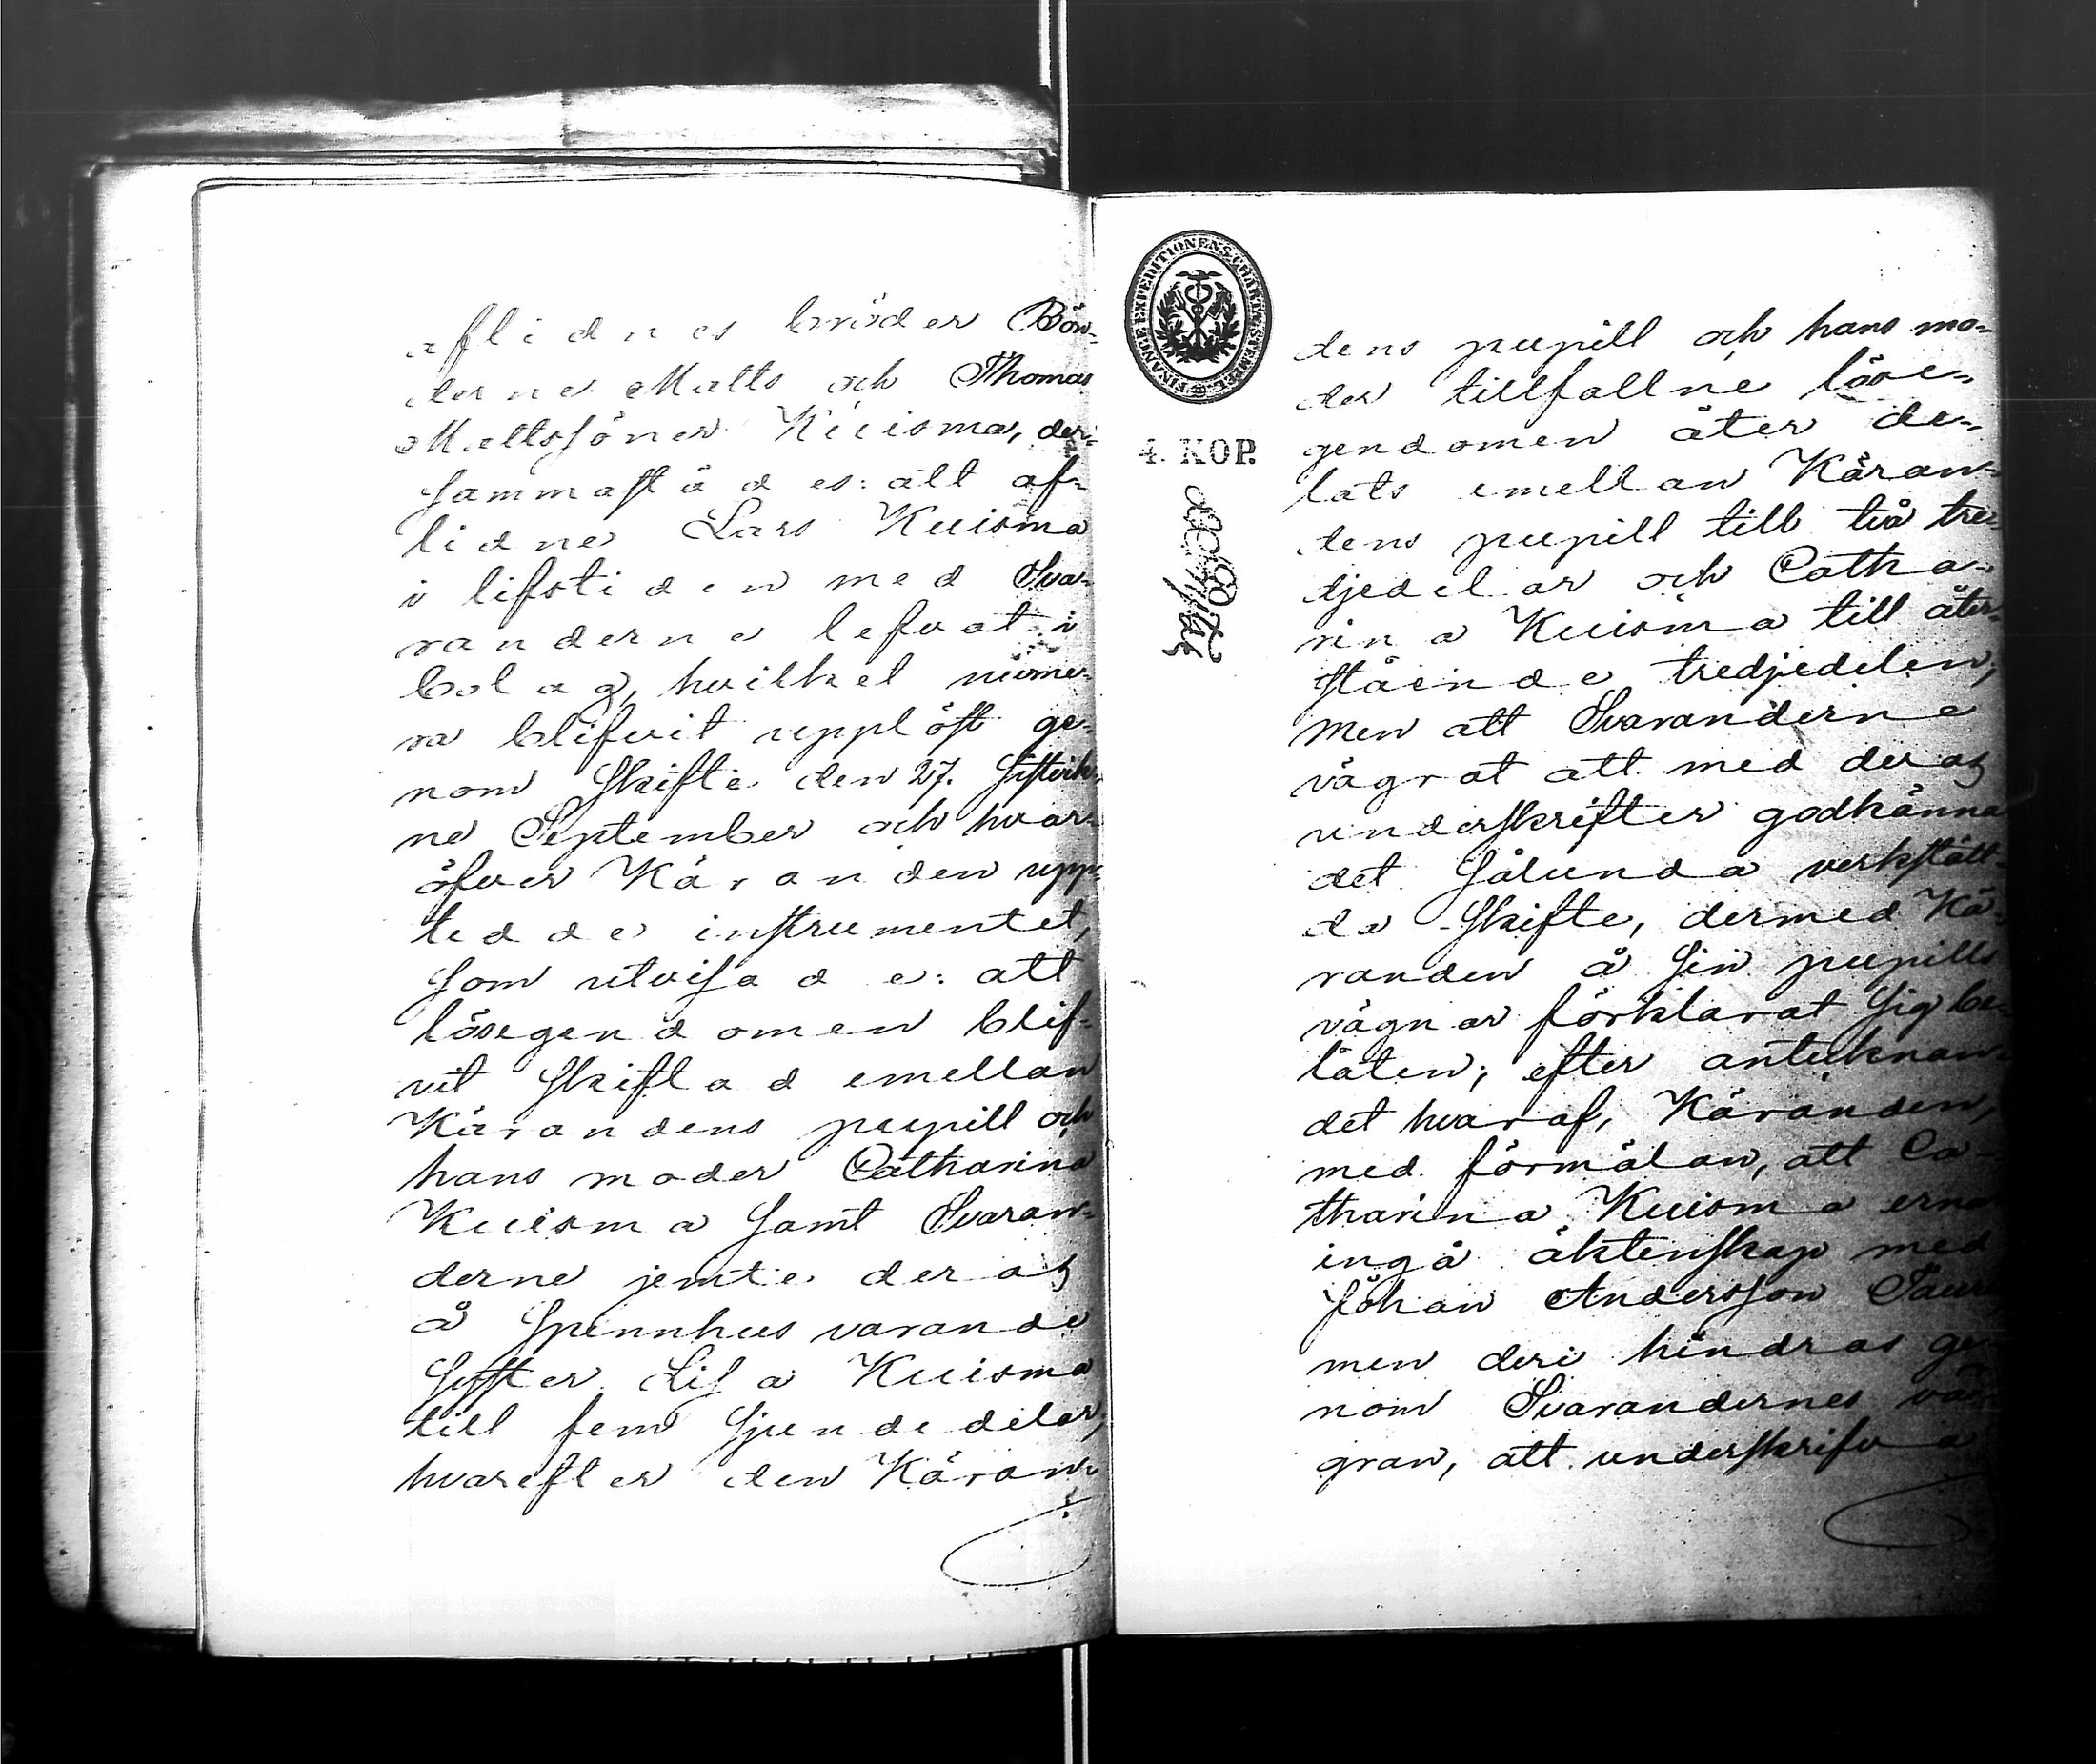 aflidnes bröder Bön-
derne Matts och Thomas
Mattssöner Kuisma, der-
sammastädes: att af-
lidne Lars Kuisma
i lifstiden med Sva-
randerne lefvat i
bolag, hvilket nume-
ra blifvit upplöst ge-
nom skifte den 27. sistvik-
ne September och hvar-
öfver Käranden upp-
tedde instrumentet,
som utvisade: att
lösegendomen blif-
vit skiftad emellan
Kärandens pupill och
hans moder Catharina
Kuisma samt Svaran-
derne jemte deras
å spinnhus varande
syster Lisa Kuisma
till fem sjundedelar,
hvarefter den Käran-
FINANCE EXPEDITIONENS CHARTÆ STEMPEL
4. KOP.
dens pupill och hans mo-
der tillfallne löse-
gendomen åter de-
lats emellan Käran-
dens pupill till två tre-
djedelar och Catha-
rina Kuisma till åter-
stående tredjedelen,
men att Svaranderne
vägrat att med deras
underskrifter godkänna
det sålunda verkstäld-
da skifte, dermed Kä-
randen å sin pupills
vägnar förklarat sig be-
låten; efter antecknan-
det hvaraf, Käranden,
med förmälan, att Ca-
tharina Kuisma erna
ingå äktenskap med
Johan Andersson
men deri hindras ge-
nom Svarandernes väg-
gran, att underskrifva